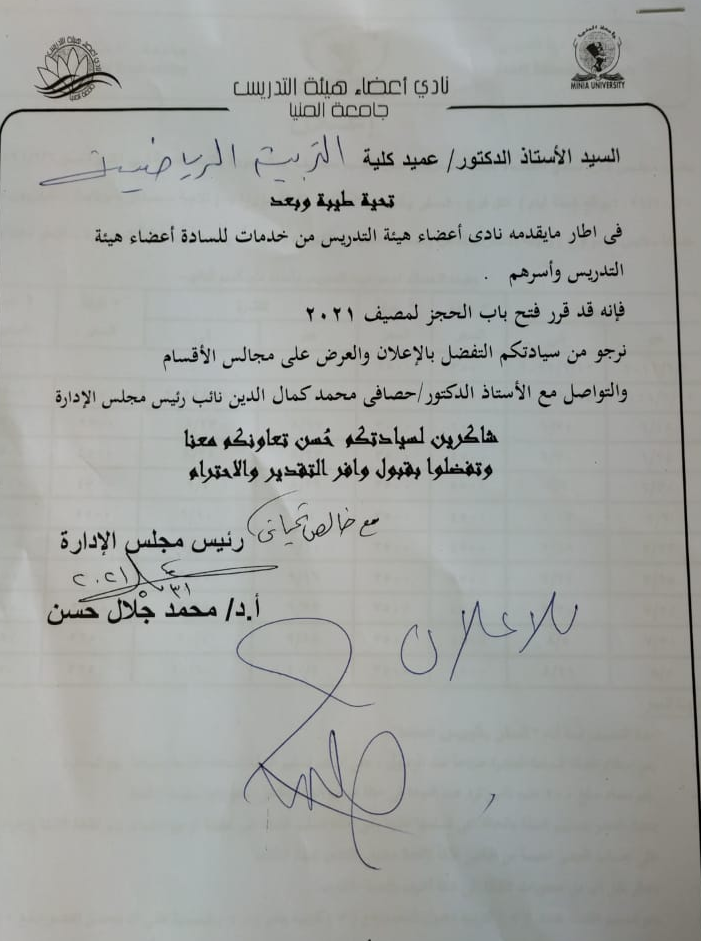 نادي أعضاء هيئة التدريس
جامعة المنيا
MINIA UNIVERSITY
السيد الأستاذ الدكتور/ عميد كلية التربية الرياضية
تحية طيبة وبعد
فى اطار مايقدمه نادى أعضاء هيئة التدريس من خدمات للسادة أعضاء هيئة
التدريس وأسرهم .
فإنه قد قرر فتح باب الحجز لمصيف ٢٠٢١
نرجو من سيادتكم التفضل بالإعلان والعرض على مجالس الأقسام
والتواصل مع الأستاذ الدكتور/حصافى محمد كمال الدين نائب رئيس مجلس الإدارة
شاكرين لسيادتكم حُسن تعاونكم معنا
وتفضلوا بقبول وافر التقدير والاحترام
مع خالص تحياتى
رئيس مجلس الإدارة
٢٠٢١
٣١
أ.د/ محمد جلال حسن
للاعلان